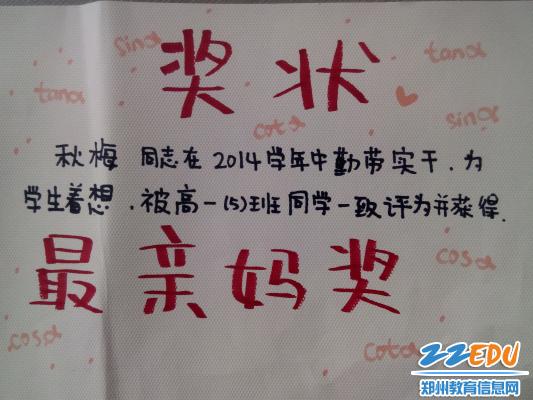 sinα
tanα
奖状
tanα
cotα
sinα
秋梅 同志在2014学年中勤带实干.为
学生着想.被高一(5)班同学一致评为并获得.
最亲妈奖
cosα
cosα
cosα
cotα
ZZEDU
郑州教育信息网